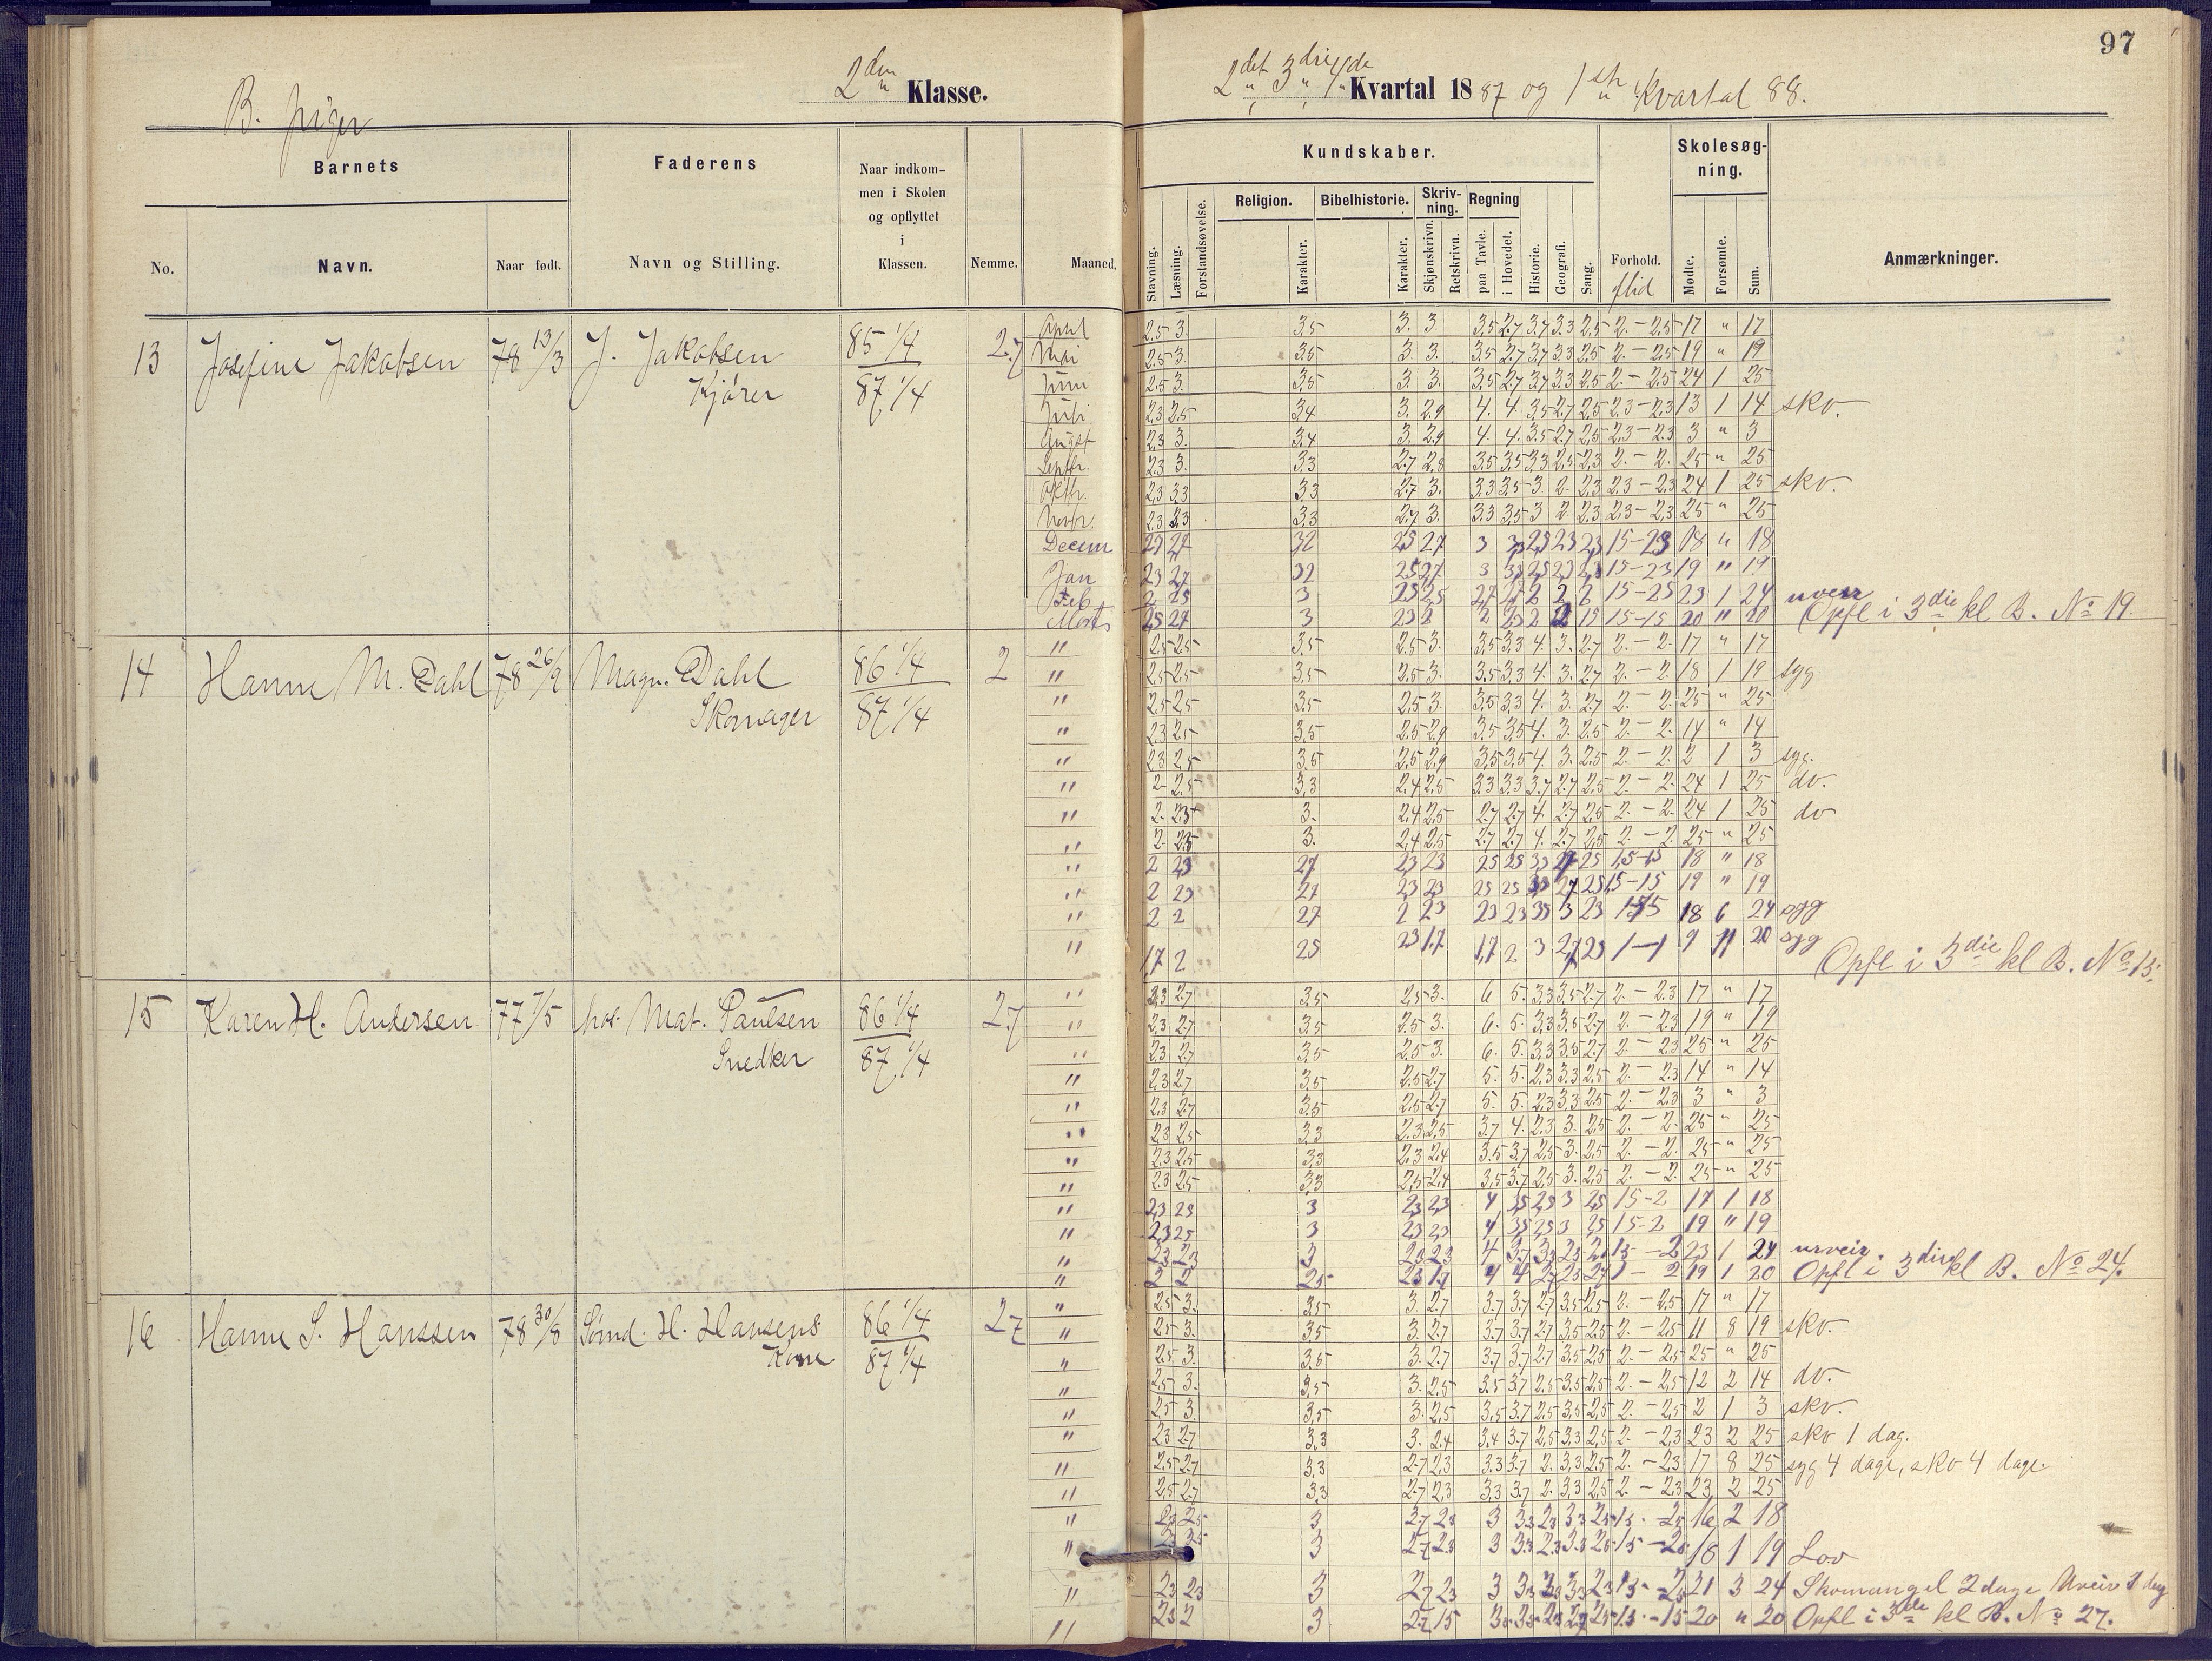 97
B. piger
2den Klasse.
2det 3die 4de Kvartal 1887 og 1ste Kvartal 88.
Barnets
Faderens
Naar indkom-
men i Skolen
og opflyttet
i
Klassen.
No.
Navn.
Naar født.
Navn og Stilling.
Nemme.
Maaned.
Kundskaber.
Skolesøg-
ning.
Religion.
Bibelhistorie.
Skriv-
ning.
Regning
Stavning.
Læsning.
Forstandsøvelse.
Karakter.
Karakter.
Skjønskrivn.
Retskrivn.
paa Tavle.
i Hovedet.
Historie.
Geografi.
Sang.
Forhold.
flid
Mødte.
Forsømte.
Sum.
Anmærkninger.
13 Josefine Jakobsen 78 13/3 J. Jakobsen 85 1/4 2.7
Kjører 87 1/4
April 2.5 3. 3.5 3. 3. 3.5 2.7 3.7 3.3 2.5 2. - 2.5 17 " 17
Mai 2.5 3. 3.5 3. 3. 3.5 2.7 3.7 3.3 2.5 2. - 2.5 19 " 19
Juni 2.5 3. 3.5 3. 3. 3.5 2.7 3.7 3.3 2.5 2. - 2.5 24 1 25
Juli 2.3 2.5 3.4 3. 2.9 4. 4. 3.5 2.7 2.5 2.3 - 2.3 13 1 14 skv.
August 2.3 3. 3.4 3. 2.9 4. 4. 3.5 2.7 2.5 2.3 - 2.3 3 " 3
Septbr. 2.3 3. 3.3 2.7 2.8 3.5 3.5 3.3 2.5 2.3 2. - 2. 25 " 25
Oktbr. 2.3 3.3 3.3 2.7 3. 3.3 3.5 3 2 2.3 2.3 - 2.3 24 1 25 skv.
Novbr. 2.3 3.3 3.3 2.7 3. 3.3 3.5 3 2 2.3 2.3 - 2.3 25 " 25
Decem 32 25 27 3 18 " 18
Jan 23 27 32 25 27 3 15 - 23 19 " 19
Feb 2 25 3 25 25 15 - 25 23 1 24 uveir
Marts 25 27 3 23 2 15 - 15 20 " 20 Opfl i 3die kl B. No 19.
14 Hanne M. Dahl 78 26/9 Magn. Dahl 86 1/4 2
Skomager 87 1/4
" 2.5 2.5 3.5 2.5 3. 3.5 3.3 4. 3. 2.7 2. - 2. 17 " 17
" 2.5 2.5 3.5 2.5 3. 3.5 3.3 4. 3. 2.7 2. - 2. 18 1 19 syg
" 2.5 2.5 3.5 2.5 3. 3.5 3.3 4. 3. 2.7 2. - 2. 25 " 25
" 2.3 2.5 3.5 2.5 2.9 3.5 3.5 4. 3. 2.5 2. - 2. 14 " 14
" 2.3 2.5 3.5 2.5 2.9 3.5 3.5 4. 3. 2.5 2. - 2. 2 1 3 syg.
" 2. 2.5 3.3 2.4 2.5 3.3 3.3 3.7 2.7 2.5 2. - 2. 24 1 25 do.
" 2. 2.5 3. 2.4 2.5 2.7 2.7 4. 2.7 2.5 2. - 2. 24 1 25 do
" 2. 2.5 3. 2.4 2.5 2.7 2.7 4. 2.7 2.5 2. - 2. 25 " 25
" 2 23 27 23 23 25 25 18 " 18
" 2 23 27 23 23 25 25 15 - 15 19 " 19
" 2 2 27 2 23 23 23 35 3 23 18 6 24 syg
" 17 2 25 23 17 17 2 3 27 23 1 - 1 9 11 20 syg
Opfl i 3die kl B. No 13.
15 Karen H. Andersen 77 7/5 hos Mat. Paulsen 86 1/4 2.7
Snedker 87 1/4
" 2.3 2.7 3.5 2.5 3. 6 5. 3.3 3.5 2.7 2. - 2.3 17 " 17
" 2.3 2.7 3.5 2.5 3. 6. 5. 3.3 3.5 2.7 2. - 2.3 19 " 19
" 2.3 2.7 3.5 2.5 3. 6. 5. 3.3 3.5 2.7 2. - 2.3 25 " 25
" 2.3 2.7 3.5 2.5 2.7 5. 5. 2.3 3.3 2.5 2. - 2.3 14 " 14
" 2.3 2.7 3.5 2.5 2.7 5. 5. 2.3 3.3 2.5 2. - 2.3 3 " 3
" 2.3 2.5 3.3 2.3 2.5 3.7 4. 2.3 3. 2.5 2. - 2. 25 " 25
" 2.3 2.5 3.3 2.3 2.4 3.5 3.7 2.5 3. 2.5 2. - 2. 25 " 25
" 2.3 2.5 3.3 2.5 2.4 3.5 3.7 2.5 3. 2.5 2. - 2. 25 " 25
" 23 23 3 23 23 4 35 25 3 25 15 - 2 17 1 18
" 23 25 3 23 23 4 35 25 3 25 15 - 2 19 " 19
" 23 23 3 23 23 4 2 23 1 24 urveir.
" 2 2 25 23 17 4 4 27 25 27 1 - 2 19 1 20 Opfl i 3die kl B. No 24.
16 Hanne S. Hanssen 78 30/8 Sømd. H. Hansens 86 1/4 27
Kone 87 1/4
" 2.5 3. 3.5 3. 2.7 3.7 3.7 2.7 3.5 2.5 2. - 2.5 17 " 17
" 2.5 3. 3.5 3. 2.7 3.7 3.7 2.7 3.5 2.5 2. - 2.5 11 8 19 skv.
" 2.5 3. 3.5 3. 2.7 3.7 3.7 2.7 3.5 2.5 2. - 2.5 25 " 25
" 2.5 3. 3.5 3. 2.5 3.5 3.7 2.5 3.5 2.5 2. - 2.5 12 2 14 do.
" 2.5 3. 3.5 3. 2.5 3.5 3.7 2.5 3.5 2.5 2. - 2.5 2 1 3 skv.
" 2.3 2.7 3.3 3. 2.4 3.4 3.7 2.5 3.3 2.5 2. - 2.3 23 2 25 skv 1 dag.
" 2.5 2.7 3.3 2.7 2.3 3.3 3.7 2. 3.3 2.5 2. - 2.3 17 8 25 syg 4 dage, skv 4 dage.
" 2.5 2.7 3.3 2.7 2.3 3.3 3.7 2. 3.3 2.5 2. - 2.3 23 2 25
" 23 25 3 27 23 3 33 23 33 25 15 - 25 16 2 18
" 3 27 23 3 33 23 33 25 15 - 25 18 1 19 Lov
" 23 23 3 27 23 3 21 3 24 Skomangel 2 dage Uveir 1 dag
" 23 2 3 27 15 15 20 " 20 Opfl i 3die kl B. No 27.